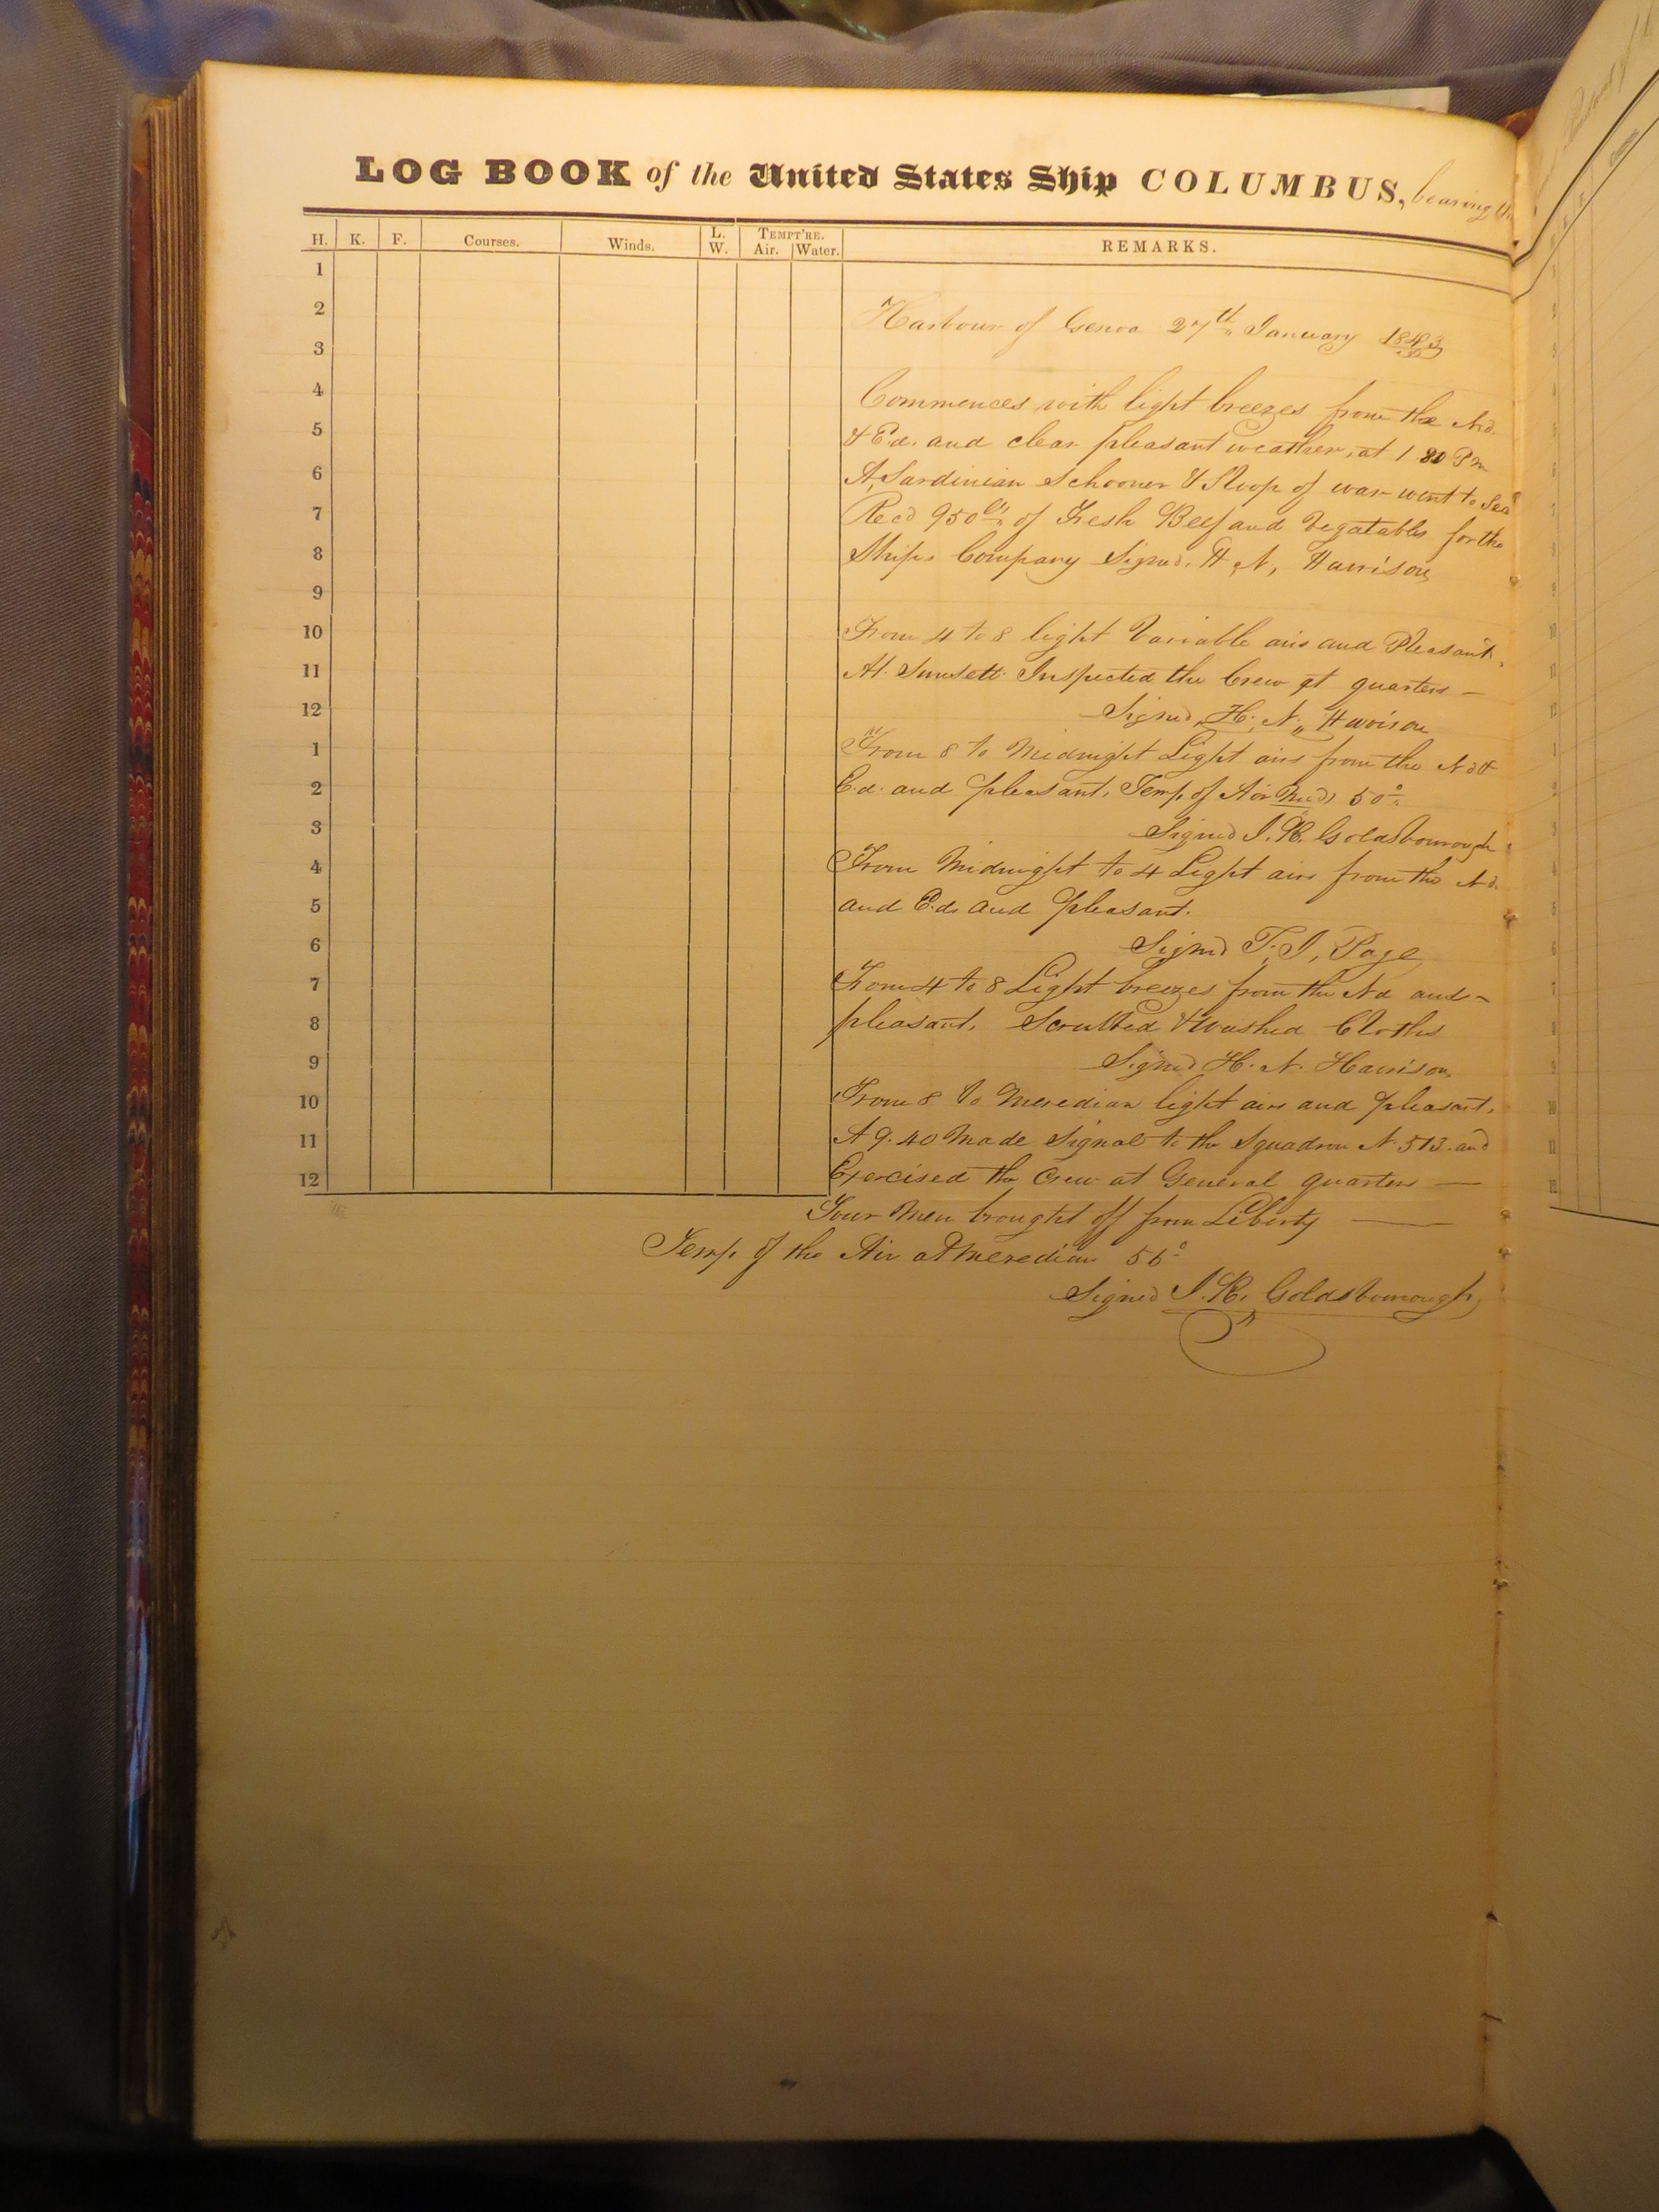 LOG BOOK of the United States Ship COLUMBUS, bearing the
H. K. F. Courses. Winds. L. W. TEMPT'RE. Air. Water. REMARKS.
1
2
Harbour of Genoa 27th January 1843
3
4
Commences with light breezes from the Nd.
5
& Ed. and clear pleasant weather, at 1 Pm
6
A Sardinian Schooner & Sloop of war went to Sea
7
Recd 950 lbs of Fresh Beef and Vegatables for the
8
Ships Company Signed. H. N, Harrison
9
10
From 4 to 8 light Variable airs and Pleasant.
11
At Sunsett Inspected the Crew at quarters —
12
Signed, H. N. Harrison
1
From 8 to Midnight Light airs from the Nd &
2
Ed. and pleasant. Temp, of Air 50°
3
Signed J. R. Goldsborough
4
From Midnight to 4 Light airs from the Nd.
5
and Ed. and pleasant.
6
Signed T. J, Page
7
From 4 to 8 Light breezes from the Nd and
8
pleasant. Scrubbed & washed Cloths
9
Signed H. N. Harrison
10
From 8 to Meredian light airs and pleasant.
11
At 9.40 Made Signal to the Squadron N. 513. and
12
Exercised the Crew at General quarters —
Four Men brought off from Liberty —
Temp. of the Air at Meredian 56°
Signed J. R. Goldsborough